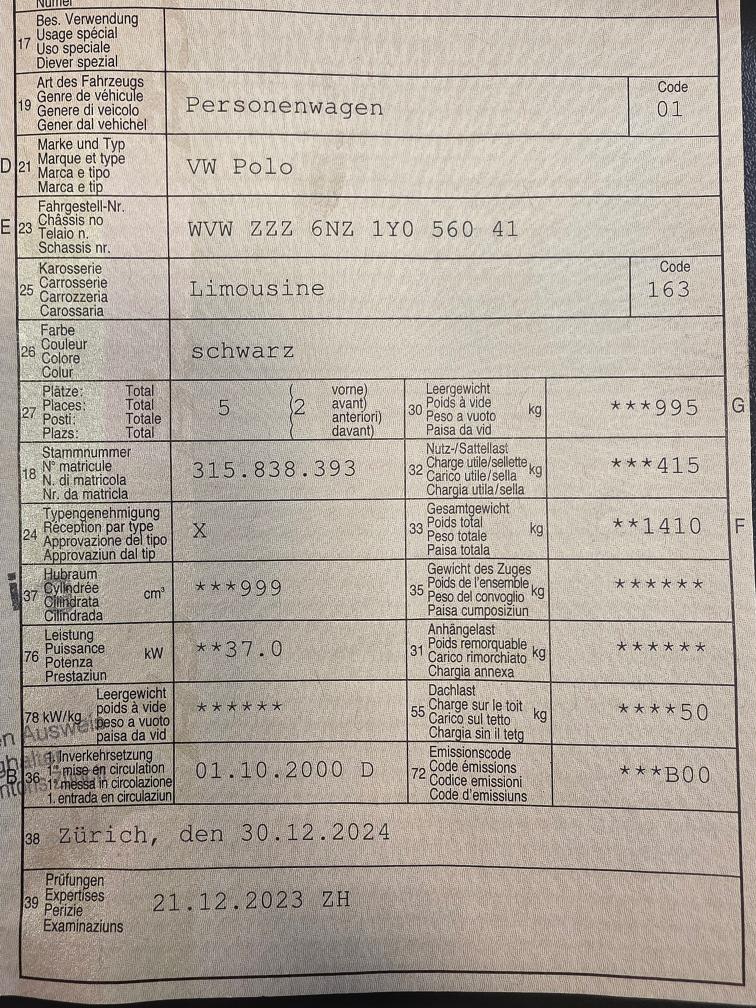 17
Bes. Verwendung
Usage spécial
Uso speciale
Diever spezial
19
Art des Fahrzeugs
Genre de véhicule
Genere di veicolo
Gener dal vehichel
Personenwagen
Code
01
D
21
Marke und Typ
Marque et type
Marca e tipo
Marca e tip
VW Polo
E
23
Fahrgestell-Nr.
Châssis no
Telaio n.
Schassis nr.
WVW ZZZ 6NZ 1Y0 560 41
25
Karosserie
Carrosserie
Carrozzeria
Carossaria
Limousine
Code
163
26
Farbe
Couleur
Colore
Colur
schwarz
27
Plätze: Total
Places: Total
Posti: Totale
Plazs: Total
5 (2
vorne)
avant)
anteriori)
davant)
30
Leergewicht
Poids à vide
Peso a vuoto
Paisa da vid
kg
***995
G
18
Stammnummer
N° matricule
N. di matricola
Nr. da matricla
315.838.393
32
Nutz-/Sattellast
Charge utile/sellette
Carico utile/sella
Chargia utila/sella
kg
***415
24
Typengenehmigung
Réception par type
Approvazione del tipo
Approvaziun dal tip
X
33
Gesamtgewicht
Poids total
Peso totale
Paisa totala
kg
**1410
F
37
Hubraum
Cylindrée
Cilindrata
Cilindrada
cm³
***999
35
Gewicht des Zuges
Poids de l'ensemble
Peso del convoglio
Paisa cumposiziun
kg
******
76
Leistung
Puissance
Potenza
Prestaziun
kW
**37.0
31
Anhängelast
Poids remorquable
Carico rimorchiato
Chargia annexa
kg
******
78 kW/kg
Leergewicht
poids à vide
peso a vuoto
paisa da vid
******
55
Dachlast
Charge sur le toit
Carico sul tetto
Chargia sin il tetg
kg
****50
B
36
1. Inverkehrsetzung
1re mise en circulation
1a messa in circolazione
1. entrada en circulaziun
01.10.2000 D
72
Emissionscode
Code émissions
Codice emissioni
Code d'emissiuns
***B00
38
Zürich, den 30.12.2024
39
Prüfungen
Expertises
Perizie
Examinaziuns
21.12.2023 ZH